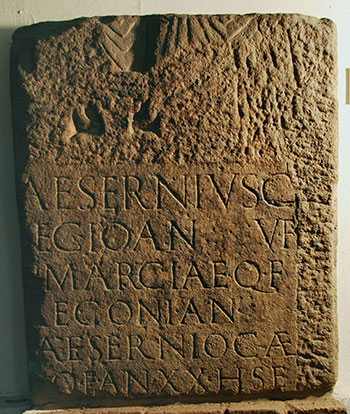 AESERNIVSC
EGIOAN VF
MARCIAEQF
EGONIAN
AESERNIOCÆ
OFANXXHSE